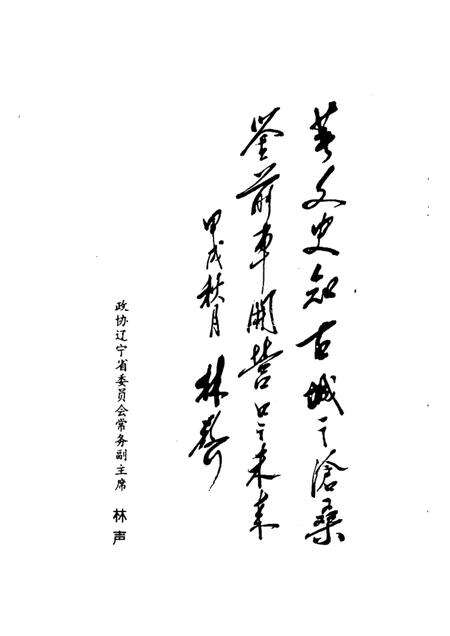 集文史知古城之沧桑
鉴前车开营口之未来
甲戌秋月 林声
政协辽宁省委员会常务副主席 林声